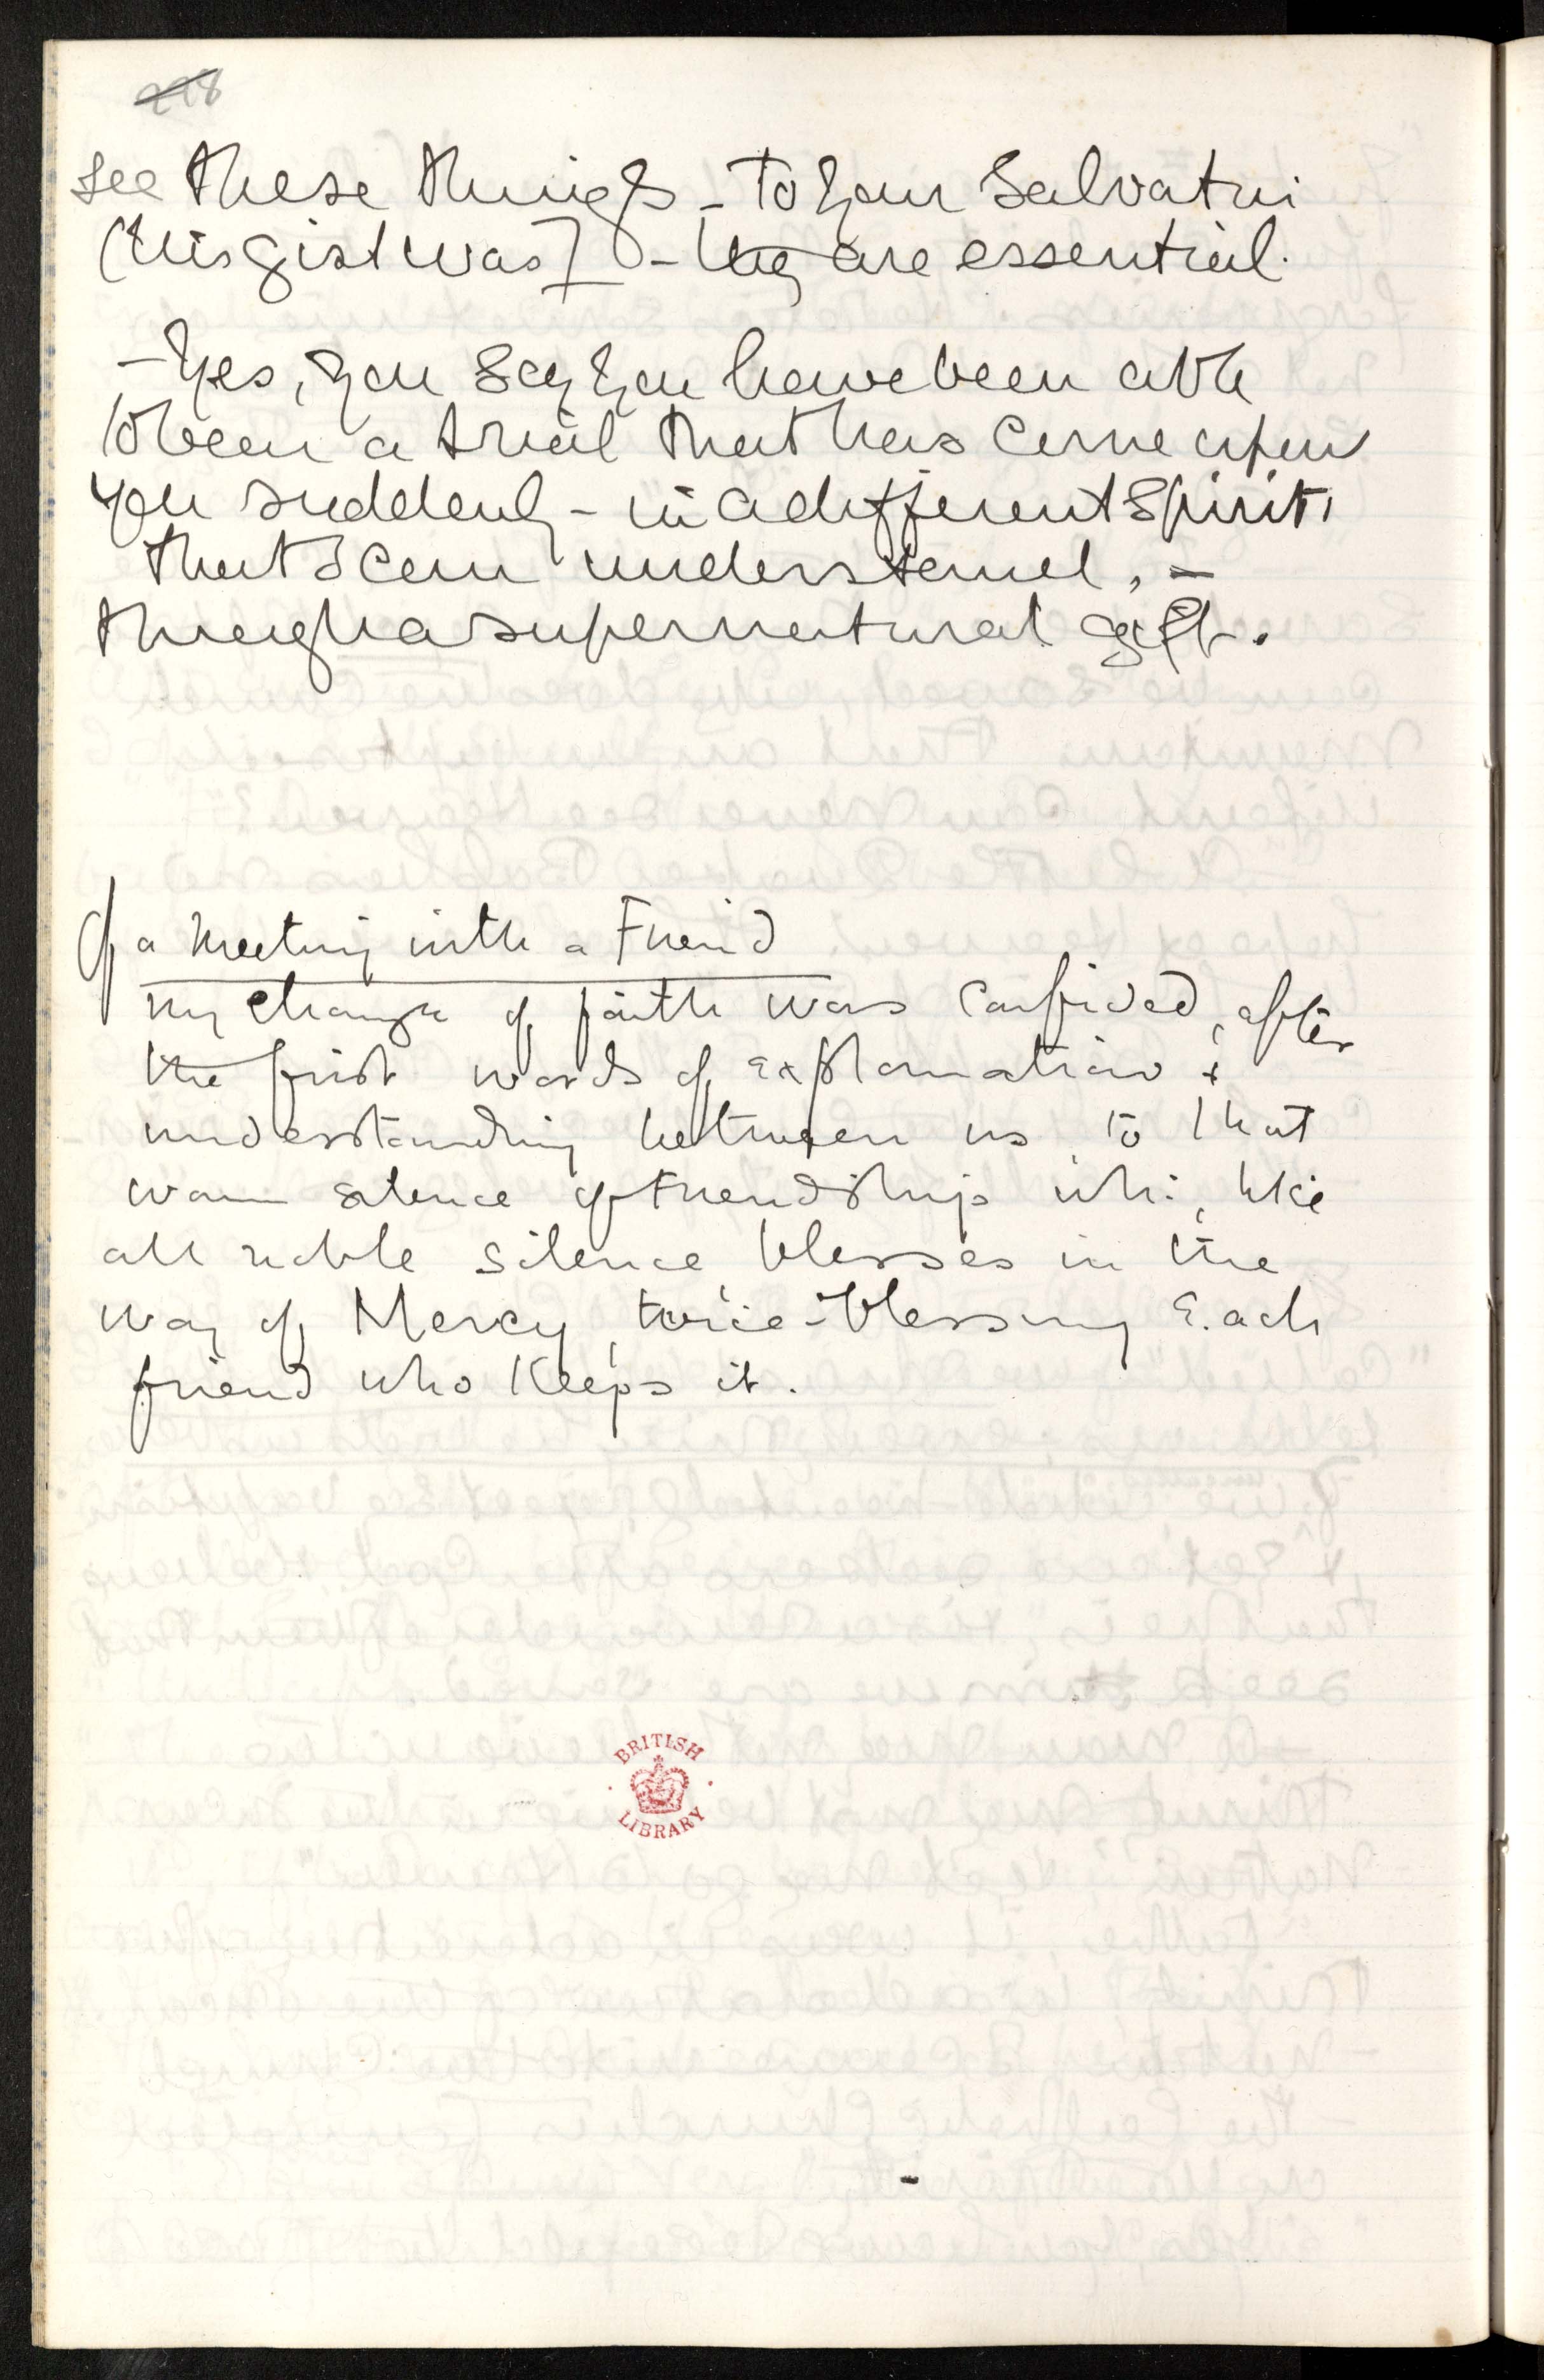 228
see these things - to your salvation
(this gist was] - they are essential.
- Yes, you say you have been able
to bear a trial that has come upon
you suddenly - in a different spirit,
that I can understand, -
through a supernatural gift.
Of a meeting with a Friend
my change of faith was confided, after
the first words of explanation &
understanding between us, to that
warm silence of friendship whi:, like
all noble silence, blesses in the
way of Mercy, twice-blessing each
friend who keeps it.
BRITISH
LIBRARY